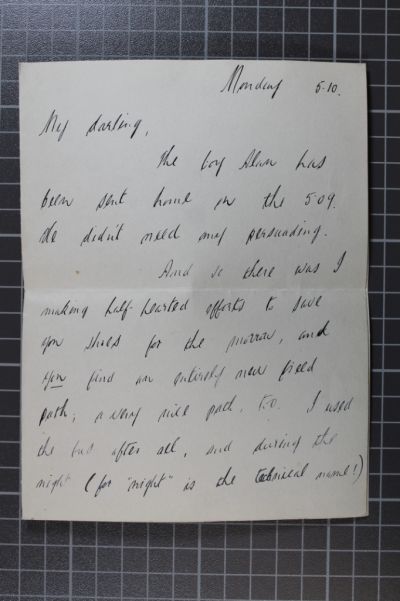 Monday 5.10.
My darling,
The boy Alan has
been sent home on the 5.09.
He didn't need any persuading.
And so there was I
making half-hearted efforts to save
you shoes for the morrow, and
you find an entirely new
path; a very nice path, too. I used
the bus after all, and during the
night (for "night" is the technical name!)